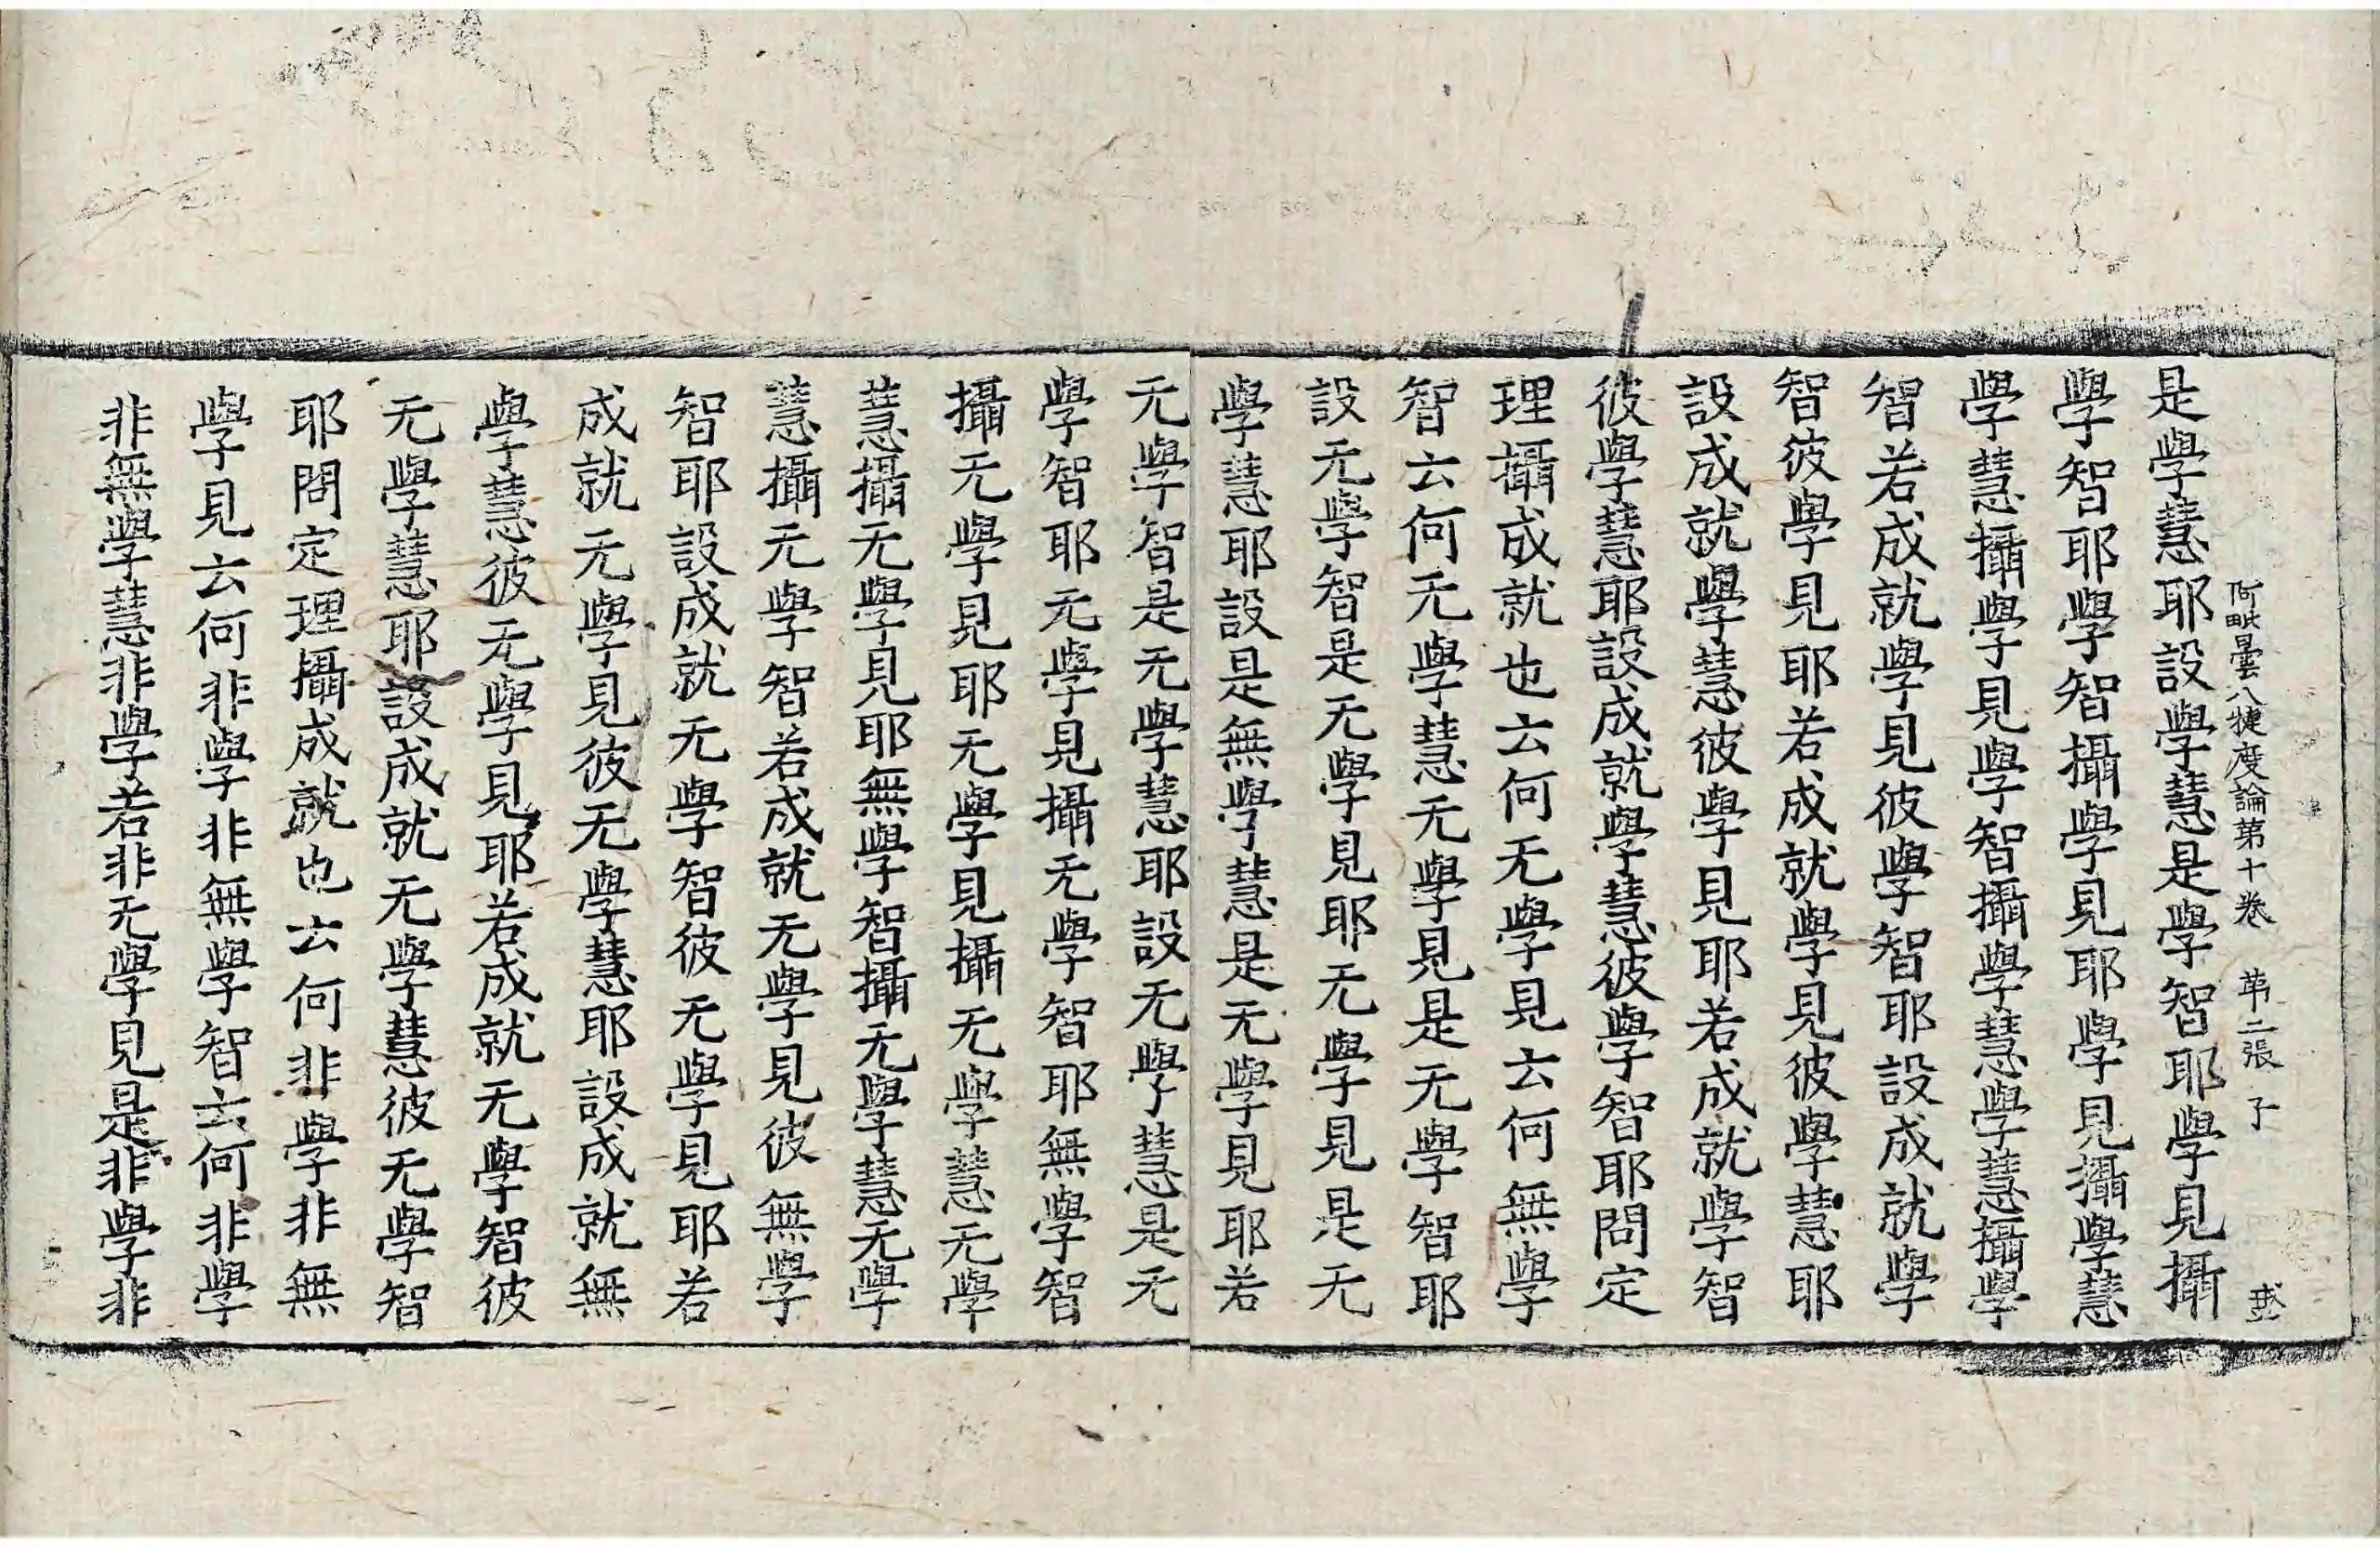 阿毗曇八揵度論苐十卷 苐二張 子
是學慧耶設學慧是學智耶學見攝
學智耶學智攝學見耶學見攝學慧
學慧攝學見學智攝學慧學慧攝學
智若成就學見彼學智耶設成就學
智彼學見耶若成就學見彼學慧耶
設成就學慧彼學見耶若成就學智
彼學慧耶設成就學慧彼學智耶問定
理攝成就也云何无學見云何無學
智云何无學慧无學見是无學智耶
設无學智是无學見耶无學見是无
學慧耶設是無學慧是无學見耶若
无學智是无學慧耶設无學慧是无
學智耶无學見攝无學智耶無學智
攝无學見耶无學見攝无學慧无學
慧攝无學見耶無學智攝无學慧无學
慧攝无學智若成就无學見彼無學
智耶設成就无學智彼无學見耶若
成就无學見彼无學慧耶設成就無
學慧彼无學見耶若成就无學智彼
无學慧耶設成就无學慧彼无學智
耶問定理攝成就也云何非學非無
學見云何非學非無學智云何非學
非無學慧非學若非无學見是非學非